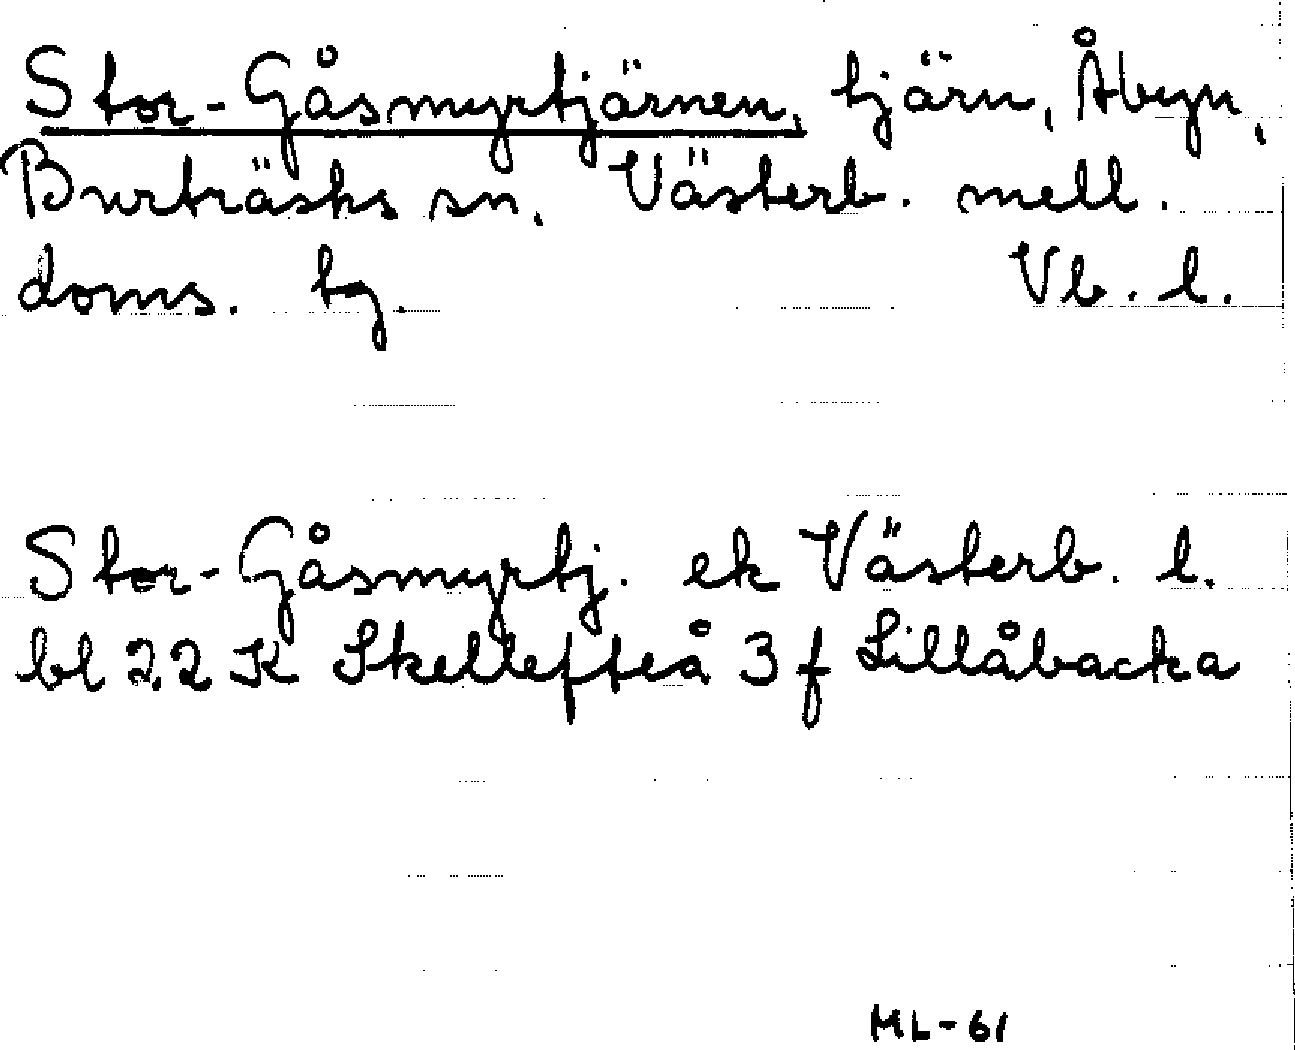 Stor-Gåsmyrtjärnen, tjärn, Åbyn,
Burträsks sn. Västerb. mell.
doms. tg. Vb. l.
Stor-Gåsmyrtj. ek Västerb. l.
bl 22 K Skellefteå 3 f Lillåbacka
ML-61